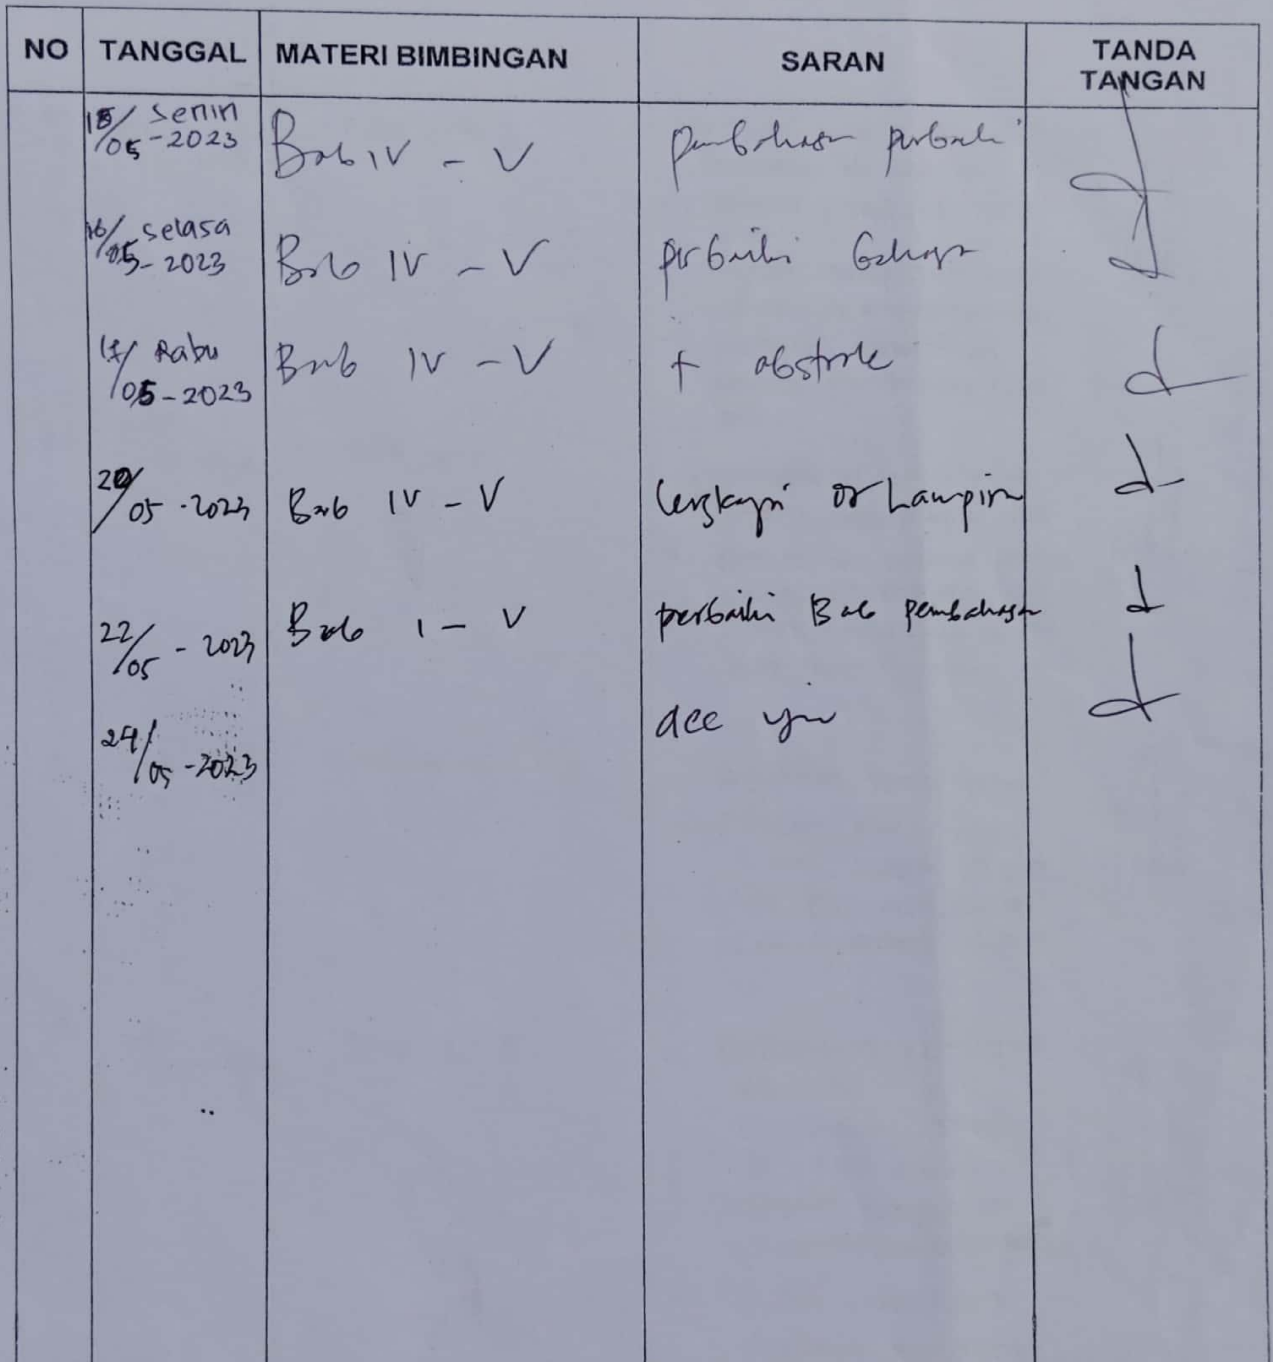 NO TANGGAL MATERI BIMBINGAN SARAN TANDA
TANGAN
15/ Senin
05 - 2023 Bab IV - V pembahasan perbaiki
16/ Selasa
05 - 2023 Bab IV - V perbaiki bahasa
17/ Rabu
05 - 2023 Bab IV - V + abstrak
20/
05 - 2023 Bab IV - V lengkapi Lampiran
22/
05 - 2023 Bab I - V perbaiki Bab pembahasan
24/
05 - 2023 acc